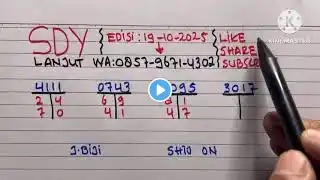 SDY EDISI:19-10-2025 LIKE
SHARE
LANJUT WA:0857-9671-4302 SUBSC
KINEMASTER
4111 0743 095 3017
2 4 6 9 8 1
7 0 4 1 4 7
J.BIJI SHIO ON